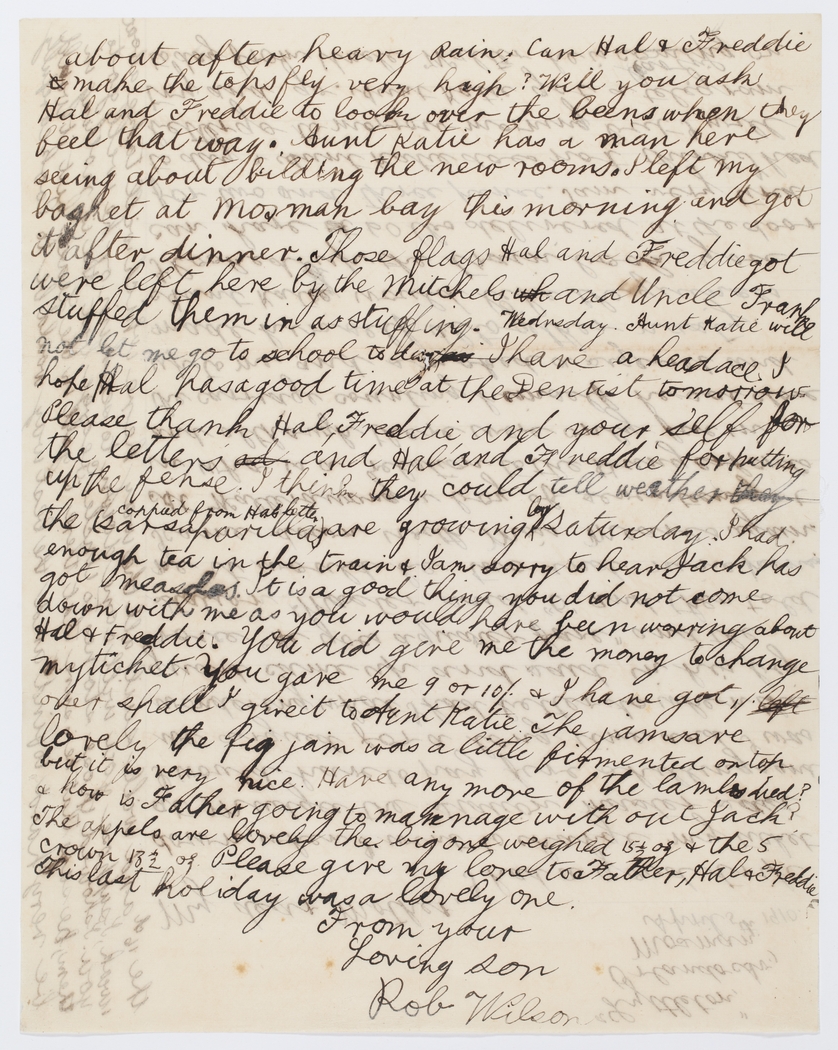 about after heavy rain. Can Hal & Freddie
& make the tops fly very high? Will you ask
Hal and Freddie to look over the beens when they
feel that way. Aunt Katie has a man here
seeing about bilding the new rooms. I left my
at Mosman bay this morning and got
it after dinner. Those flags Hal and Freddie got
were left here by the Mitchels wh and Uncle Frank
stuffed them in as stuffing. Wednesday. Aunt Katie will
not let me go to school I have a headace. I
hope Hal has a good time at the Dentist tomorrow
Please thank Hal Freddie and your self for
the letters and Hal and Freddie for putting
up the fense. I think they could tell weather thay
corpied from Hals letter
the (sarsaparillas) are growing by Saturday. I had
enough tea in the train & I am sorry to hear Jack has
got measles. It is a good thing you did not come
down with me as you would have been worring about
Hal & Freddie. You did give me the money to change
my ticket. You gave me 9 or 10/. & I have got 1/. left
over shall I give it to Aunt Katie The jams are
lovely the fig jam was a little firmented on top
but it is very nice. Have any more of the lambs died?
& how is Father going to mannage with out Jack?
The appels are lovely the big one weighed 15½ oz & the 5
crown 13½ oz Please give my love to Father, Hal & Freddie
This last holiday was a lovely one.
From your
Loving son
Rob Wilson